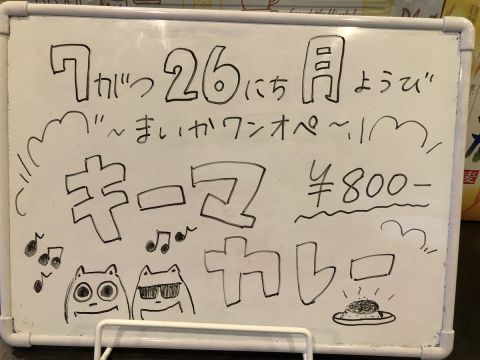 7がつ26にち月ようび
~まいかワンオペ~
キーマ
¥800-
カレー